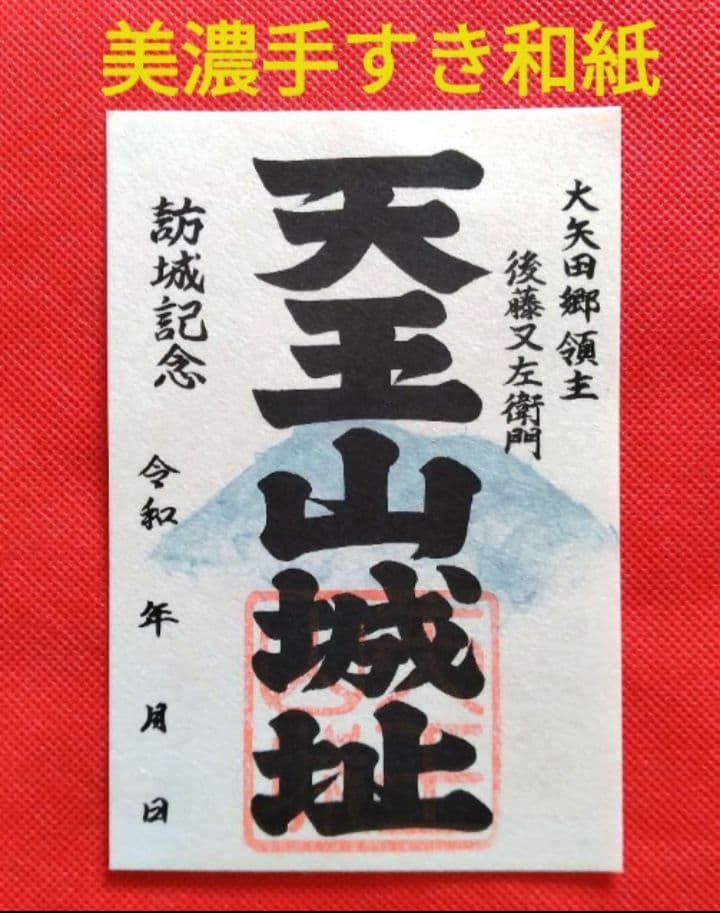 美濃手すき和紙
大矢田郷領主
後藤又左衛門
天王山城址
訪城記念
令和 年 月 日